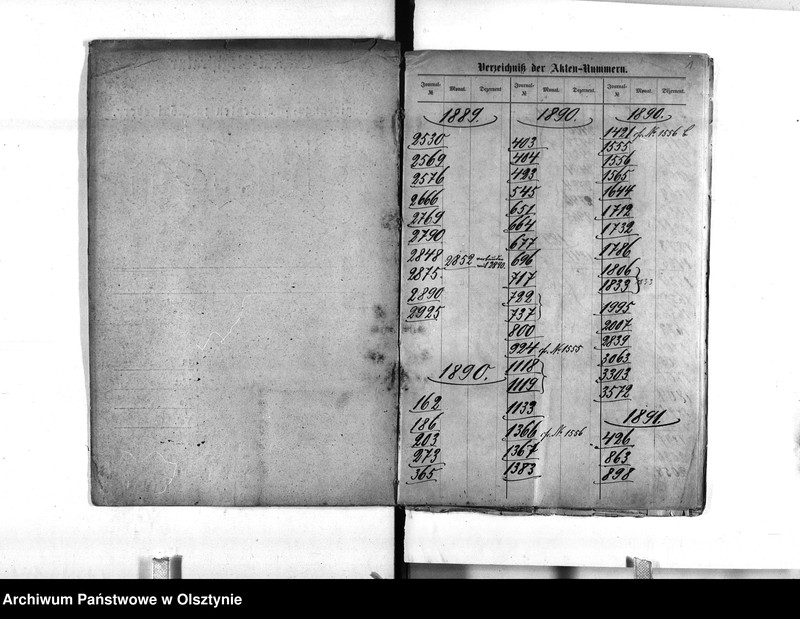 Verzeichniß der Akten-Nummern.
Journal-№ Monat. Dezernent. Journal-№ Monat. Dezernent. Journal-№ Monat. Dezernent.
1889.
2530
2569
2576
2666
2769
2790
2848
2852
2875
2890
2925
1890.
162
186
203
273
365
1890.
403
404
423
545
651
664
677
696
717
722
737
800
924 cf. № 1555
1118
1119
1133
1366 cf. № 1556
1367
1383
1890.
1421 cf. № 1556
1555
1556
1565
1644
1712
1732
1786
1806
1833
1995
2007
2839
3063
3303
3572
1891.
426
863
898
Archiwum Państwowe w Olsztynie